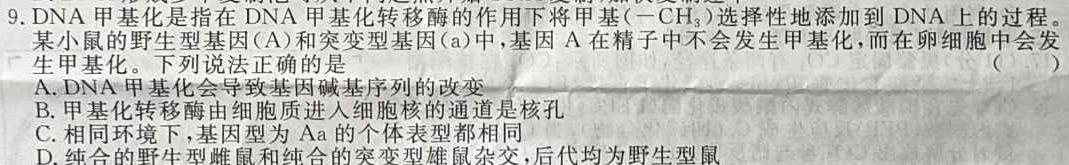 9. DNA 甲基化是指在 DNA 甲基化转移酶的作用下将甲基(－CH₃)选择性地添加到 DNA 上的过程。
某小鼠的野生型基因(A)和突变型基因(a)中,基因 A 在精子中不会发生甲基化,而在卵细胞中会发
生甲基化。下列说法正确的是 ( )
A. DNA 甲基化会导致基因碱基序列的改变
B. 甲基化转移酶由细胞质进入细胞核的通道是核孔
C. 相同环境下,基因型为 Aa 的个体表型都相同
D. 纯合的野生型雌鼠和纯合的突变型雄鼠杂交,后代均为野生型鼠